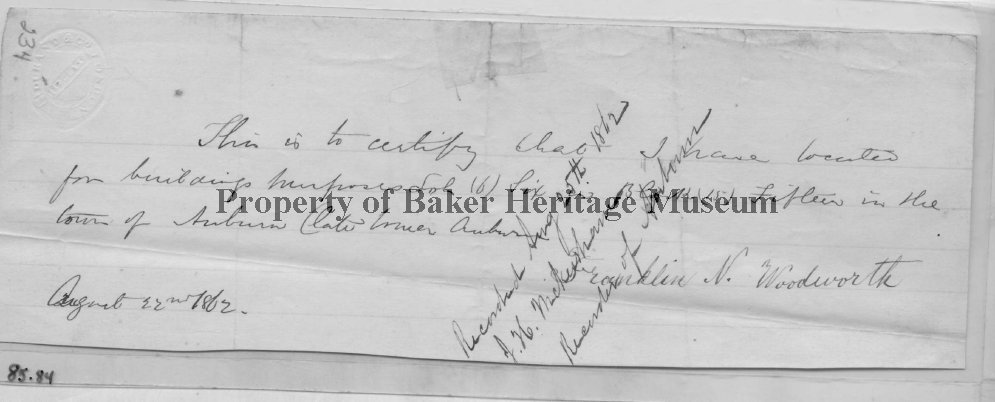 234
This is to certify that I have located
for buildings purposes Lot (6) Six in Block (15) Fifteen in the
town of Auburn (late Auburn
Franklin N. Woodworth
August 22nd 1862.
Recorded Aug 1862
J. H.
Recorder of Auburn
Property of Baker Heritage Museum
85.84